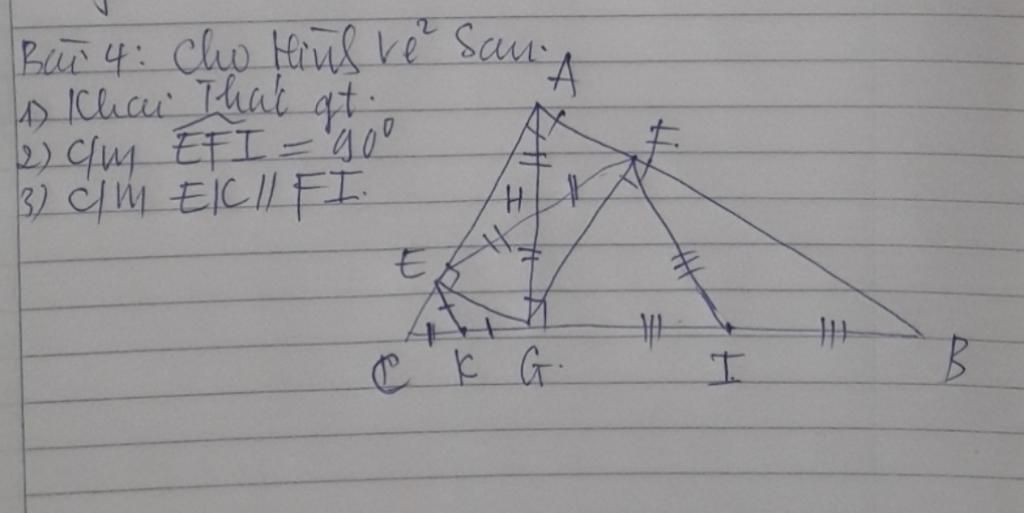 Bài 4: Cho Hình vẽ sau.
1) Khai Thác gt.
2) C/m EFI = 90⁰
3) C/m EK // FI.
A
F
H
E
C K G I B